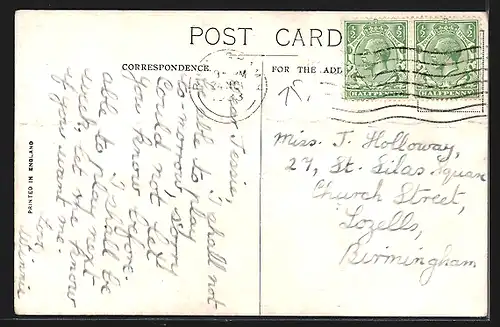 POST CARD
CORRESPONDENCE
FOR THE ADD
HALFPENNY
HALFPENNY
Dear Jessie,
I shall not
be able to play
to-morrow, sorry
could not let
you know before.
I shall be
able to play next
week, let me know
if you want me.
Love
Winnie
Miss. J. Holloway,
27, St. Silas Square
Church Street,
Lozells,
Birmingham
PRINTED IN ENGLAND